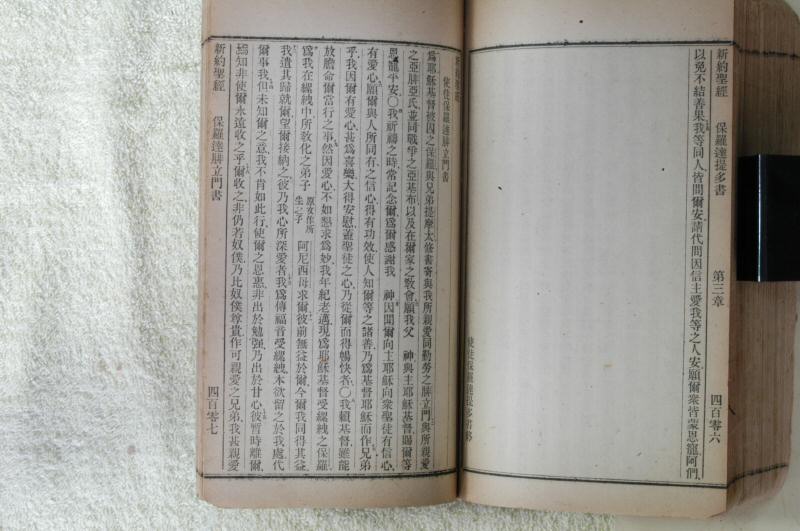 新約聖經 保羅達提多書 第三章 四百零六
以免不結善果、我等同人、皆問爾安、請代問因信主愛我等之人安、願爾衆皆蒙恩寵、阿們、
使徒保羅達提多書終
新約聖經
使徒保羅達腓立門書
爲耶穌基督被囚之保羅、與兄弟提摩太、修書寄與我所親愛同勤勞之腓立門、與所親愛
之亞腓亞氏、並同戰爭之亞基布、以及在爾家之教會、願我父 神與主耶穌基督、賜爾等
恩寵平安、〇我祈禱之時、常記念爾、爲爾感謝我 神、因聞爾向主耶穌、向衆聖徒、有信心、
有愛心、願爾與人所同有之信心、得有功效、使人知爾等之諸善、乃爲基督耶穌而作、兄弟
乎、我因爾有愛心、甚爲喜樂、大得安慰、蓋聖徒之心、乃從爾而得暢快者、〇我賴基督、雖能
放膽命爾當行之事、然因愛心、不如懇求爲妙、我年紀老邁、現爲耶穌基督受縲絏之保羅、
爲我在縲絏中所教化之弟子 原文作所生之子 阿尼西母求爾、彼前無益於爾、今爾我同得其益、
我遣其歸就爾、望爾接納之、彼乃我心所深愛者、我爲傳福音受縲絏、本欲留之於我處、代
爾事我、但未知爾之意、我不肯如此行、使爾之恩惠、非出於勉強、乃出於甘心、彼暫時離爾、
焉知非使爾永遠收之乎、爾收之、非仍若奴僕、乃比奴僕尊貴、作可親愛之兄弟、我甚親愛
新約聖經 保羅達腓立門書 四百零七